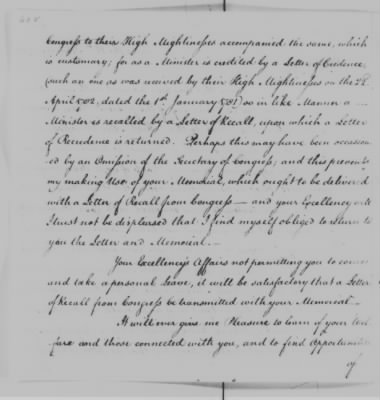 Congress to their High Mightinesses accompanied the same, which
is customary; for as a Minister is credited by a Letter of Credence,
(such an one as was received by their High Mightinesses on the 22
April 1782, dated the 1st January 1781) so in like Manner a
Minister is recalled by a Letter of Recall, upon which a Letter
of Recredence is returned. Perhaps this may have been occasion
ed by an Omission of the Secretary of Congress; and this prevents
my making Use of your Memorial, which ought to be delivered
with a Letter of Recall from Congress — and your Excellency
must not be displeased that I find myself obliged to return to
you the Letter and Memorial. —
Your Excellency's Affairs not permitting you to come
and take a personal Leave, it will be satisfactory that a Letter
of Recall from Congress be transmitted with your Memorial. —
It will ever give me Pleasure to learn of your Wel
fare and those connected with you, and to find Opportunities
of